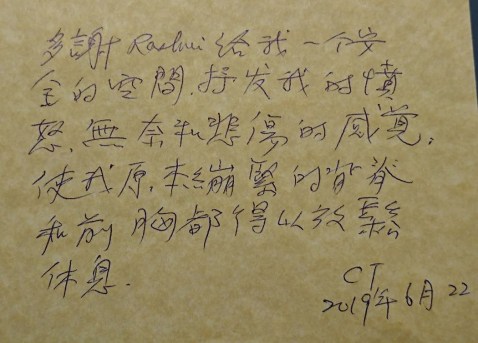 多謝 Rashmi 给我一个安
全的空間. 抒发我的憤
怒、無奈和悲傷的感覺.
使我原本繃緊的背脊
和前胸都得以放鬆
休息.
CT
2019年6月22